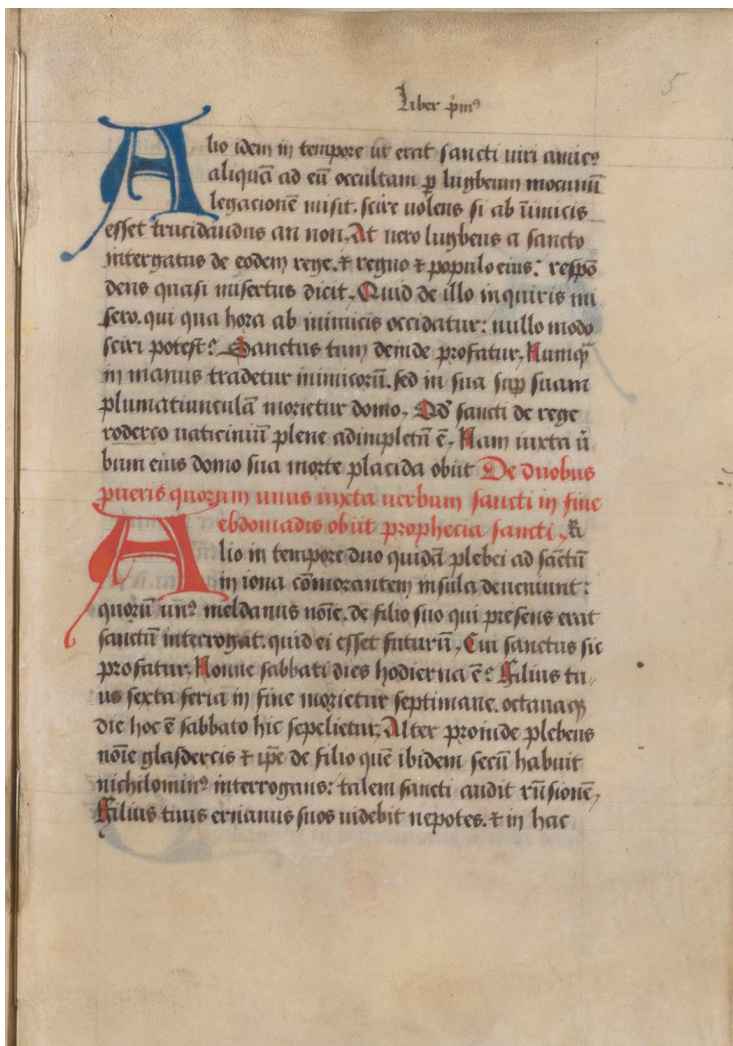 Liber p̄mꝰ
5
Alio idem in tempore ut erat sancti uiri amicꝰ
aliquā ad eū occultam ꝑ lugbeum mocunū
legacionē misit. scire uolens si ab īimicis
esset trucidandus an non. At uero lugbeus a sancto
interꝛogatus de eodem rege. ⁊ regno ⁊ populo eius: respō
dens quasi misertus dicit. Quid de illo inquiris mi
sero. qui qua hora ab inimicis occidatur: nullo modo
sciri potest? Sanctus tum deinde profatur. Numqͣ
in manus tradetur inimicorū. sed in sua suꝑ suam
plumatiunculā morietur domo. Qd̄ sancti de rege
roderco uaticiniū plene adimpletū ē. Nam iuxta ū
bum eius domo sua morte placida obiit De duobus
pueris quorum unus iuxta uerbum sancti in fine
ebdomadis obiit prophecia sancti.
Alio in tempore duo quidā plebei ad sāctū
in iona cōmorantem insula deueniunt:
quorū unꝰ meldanus noīe. de filio suo qui presens erat
sanctū interrogat. quid ei esset futurū. Cui sanctus sic
profatur. Nonne sabbati dies hodierna ē? Filius tu
us sexta feria in fine morietur septimane. octauaqꝫ
die hoc ē sabbato hic sepelietur. Alter proinde plebeus
noīe glasdercis ⁊ ip̄e de filio quē ibidem secū habuit
nichilominꝰ interrogans: talem sancti audit rn̄sionē.
Filius tuus ernanus suos uidebit nepotes. ⁊ in hac